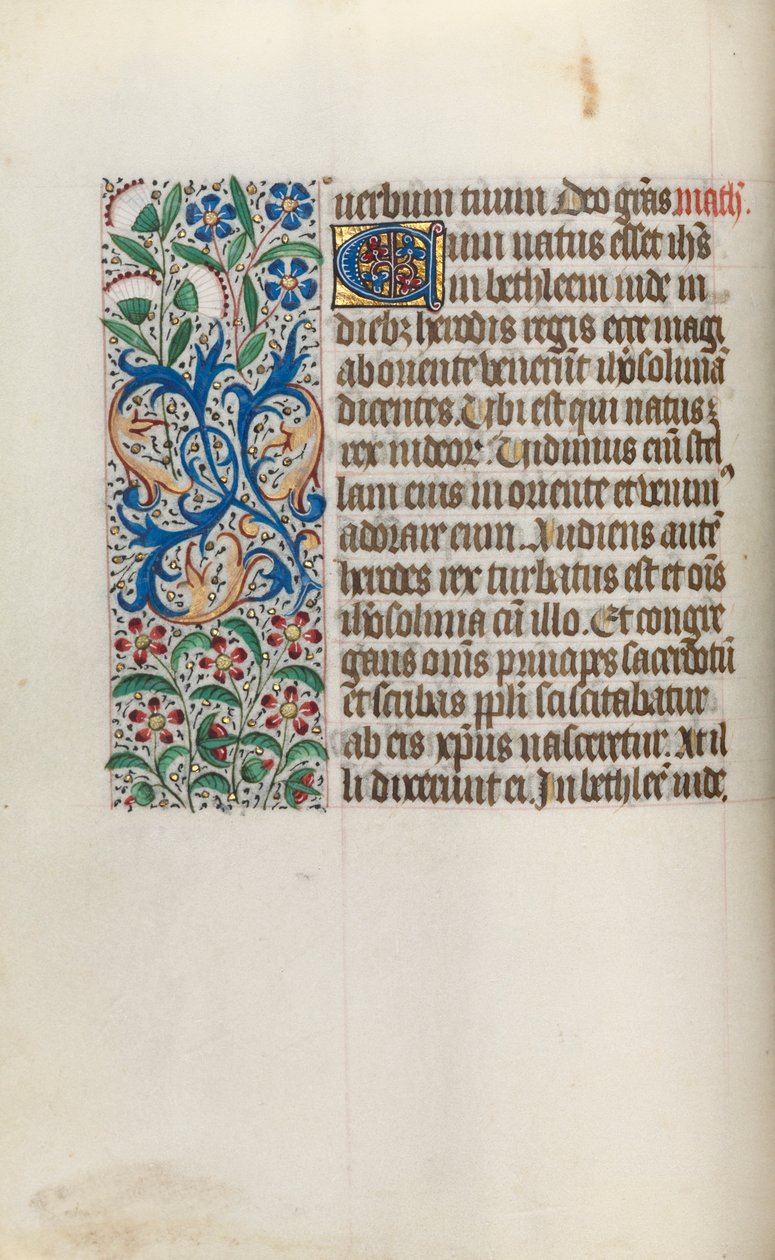 uerbum tuum Deo grās math̄.
Cum natus esset ih̄s
in bethleem iude in
diebꝫ herodis regis ecce magi
ab oriente venerūt ih̓osolimā
dicentes. Vbi est qui natus ē
rex iudeoꝝ. Vidimus eiī stel
lam eius in oriente et venim᷒
adorare eum. Audiens autē
herodes rex turbatus est et oīs
ih̓osolima cū illo. Et congre
gans om̄s principes sacerdotū
et scribas pp̄li sciscitabatur
ab eis xp̄us nasceretur. At il
li dixerunt ei. In bethleē iude.